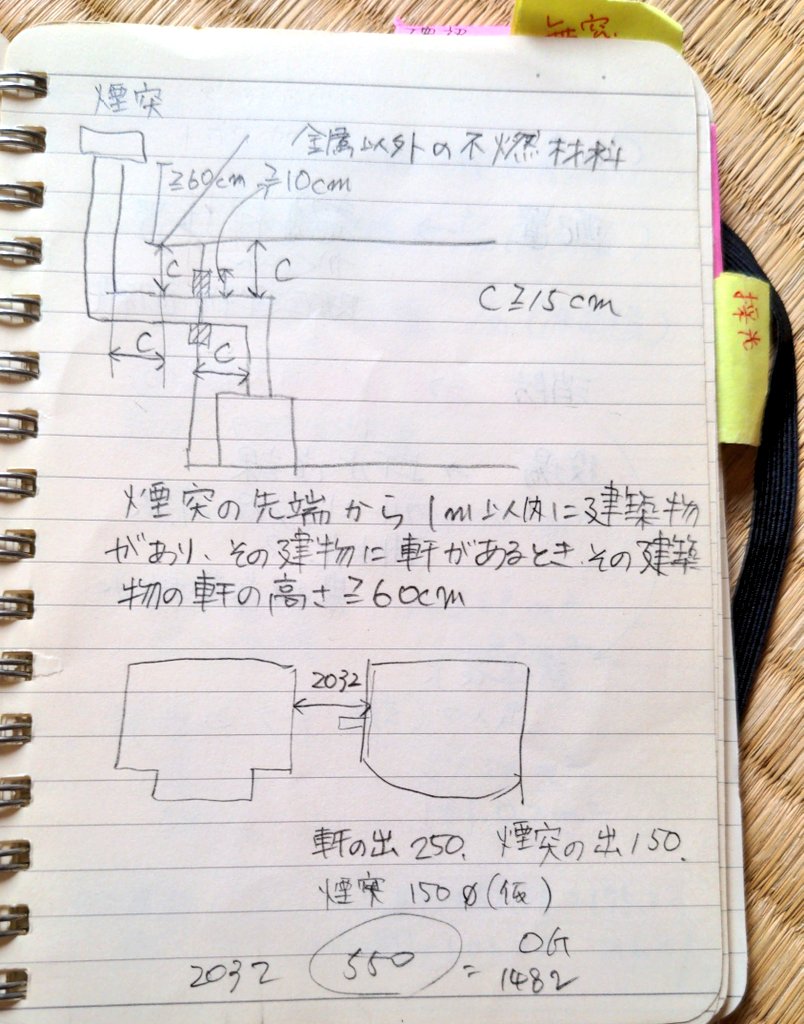 無窓
煙突
金属以外の不燃材料
≧60cm ≧10cm
C
C
C≧15cm
C
C
採光
煙突の先端から1m以内に建築物
があり、その建物に軒があるとき、その建築
物の軒の高さ≧60cm
2032
軒の出250. 煙突の出150.
煙突 150φ(仮)
2032 550 = 1482
OG